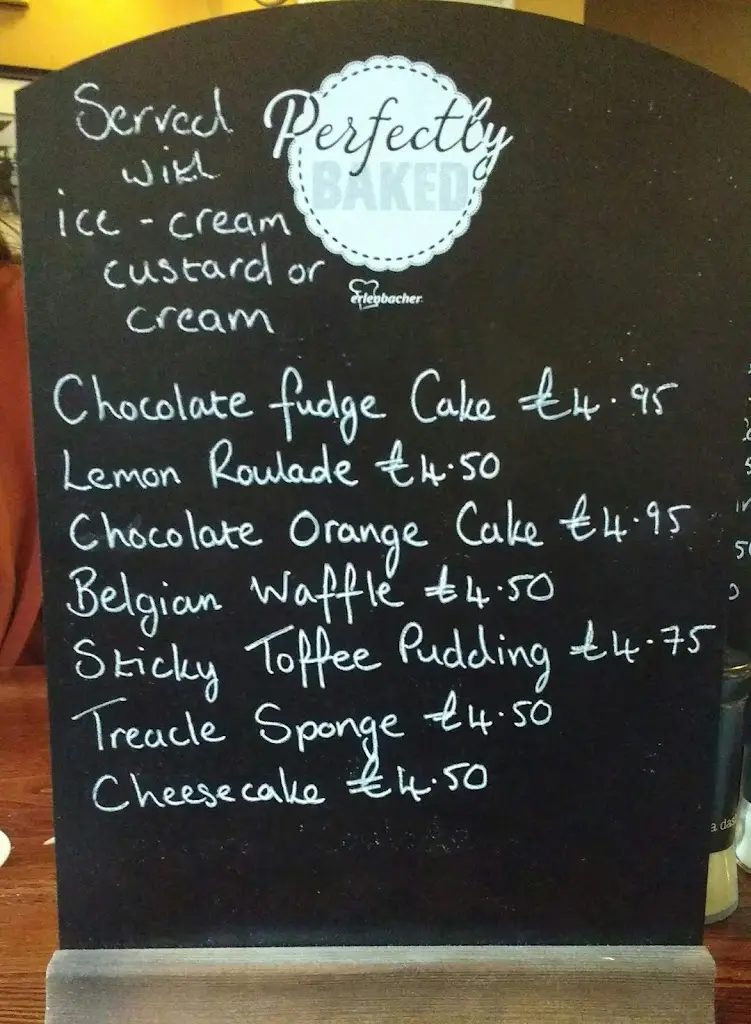 Served
with
ice - cream
custard or
cream
Perfectly
BAKED
erlenbacher
Chocolate fudge Cake £4.95
Lemon Roulade £4.50
Chocolate Orange Cake £4.95
Belgian Waffle £4.50
Sticky Toffee Pudding £4.75
Treacle Sponge £4.50
Cheesecake £4.50